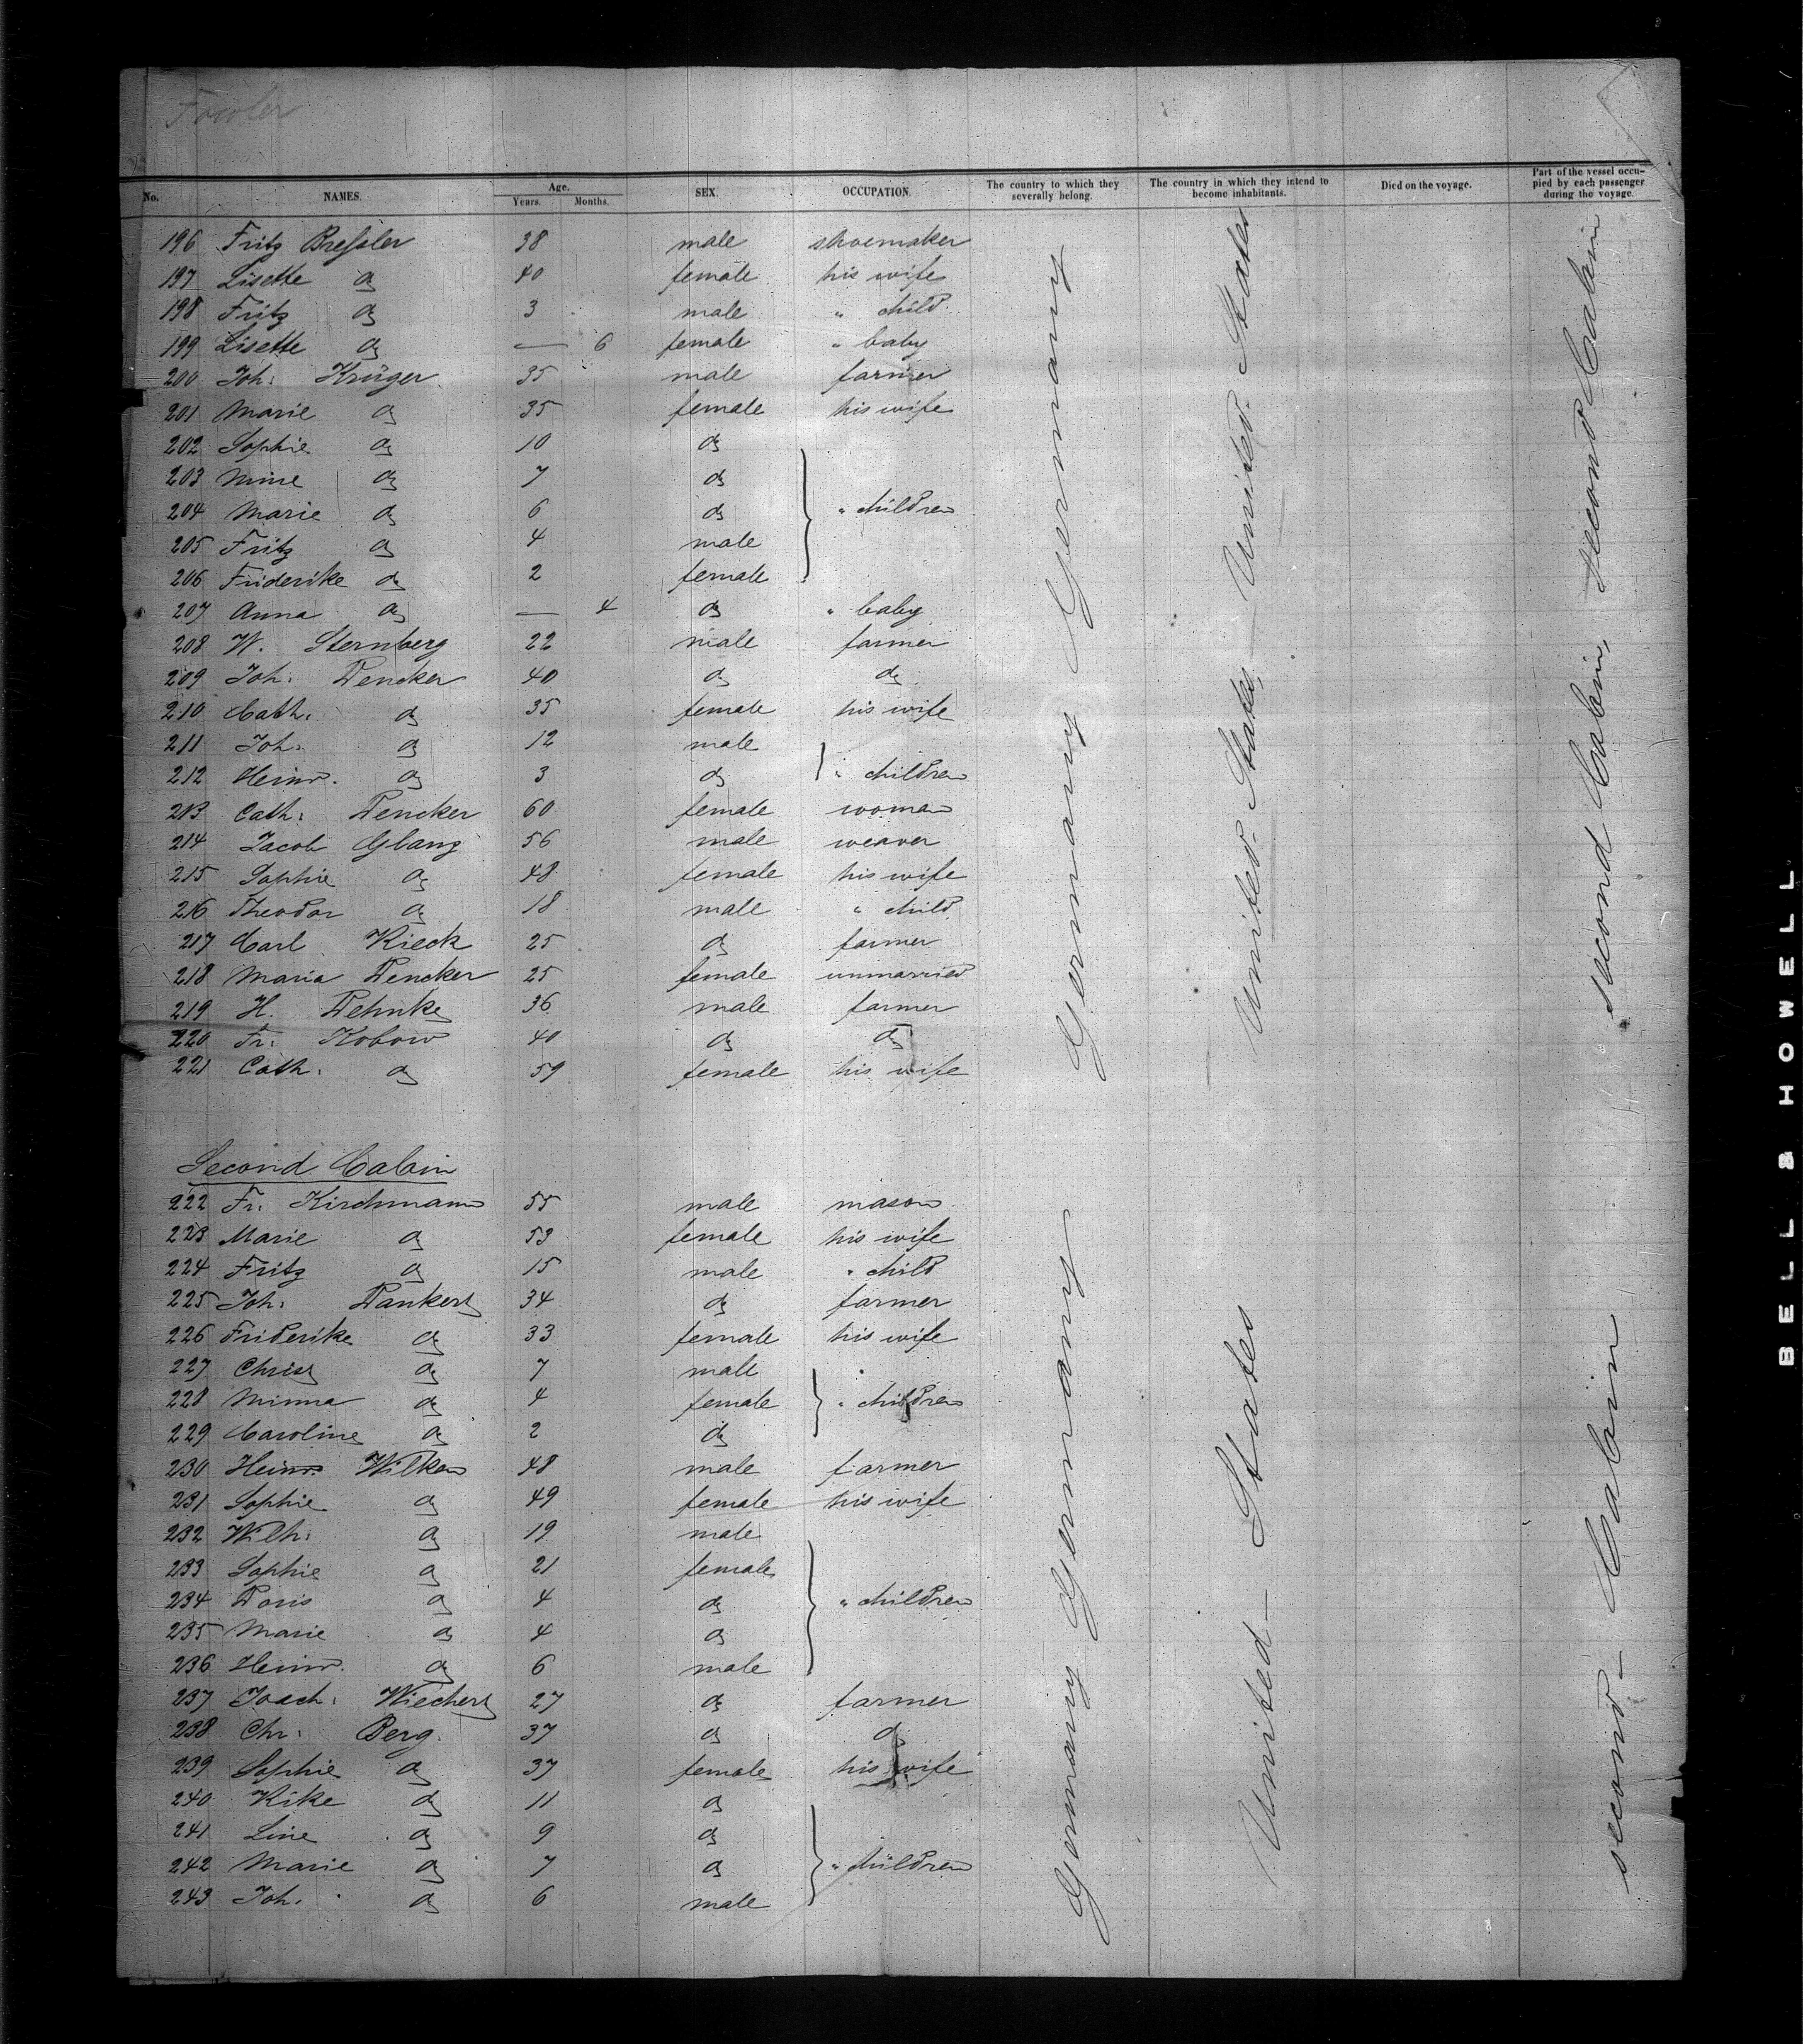 Fowler
No. NAMES. Age. Years. Months. SEX. OCCUPATION. The country to which they severally belong. The country in which they intend to become inhabitants. Died on the voyage. Part of the vessel occupied by each passenger during the voyage.
196 Fritz Breſsler 38 male shoemaker
197 Lisette do 40 female his wife
198 Fritz do 3 male " child
199 Lisette do — 6 female " baby
200 Joh: Krüger 35 male farmer
201 Marie do 35 female his wife
202 Sophie do 10 do
203 Mine do 7 do
204 Marie do 6 do " children
205 Fritz do 4 male
206 Friderike do 2 female
207 Anna do — 4 do " baby
208 W. Sternberg 22 male farmer
209 Joh: Dencker 40 do do
210 Cath: do 35 female his wife
211 Joh: do 12 male
212 Heinr. do 3 do " children
213 Cath: Dencker 60 female woman
214 Jacob Glang 56 male weaver
215 Sophie do 48 female his wife
216 Theodor do 18 male " child
217 Carl Kieck 25 do farmer
218 Maria Dencker 25 female unmarried
219 H. Dehnke 36 male farmer
220 Fr: Kobow 40 do do
221 Cath: do 59 female his wife
Germany Germany
United States, United States
second Cabin, second Cabin
Second Cabin
222 Fr. Kirchmann 55 male mason
223 Marie do 53 female his wife
224 Fritz do 15 male " child
225 Joh: Dankert 34 do farmer
226 Friderike do 33 female his wife
227 Christ do 7 male
228 Minna do 4 female " children
229 Caroline do 2 do
230 Heinr. Wilken 48 male farmer
231 Sophie do 49 female his wife
232 Wilh: do 19 male
233 Sophie do 21 female
234 Doris do 4 do " children
235 Marie do 4 do
236 Heinr. do 6 male
237 Joach: Wiechert 27 do farmer
238 Chr: Berg. 37 do do
239 Sophie do 37 female his wife
240 Rike do 11 do
241 Line do 9 do
242 Marie do 7 do " children
243 Joh. do 6 male
Germany Germany
United – States
second – Cabin
BELL & HOWELL